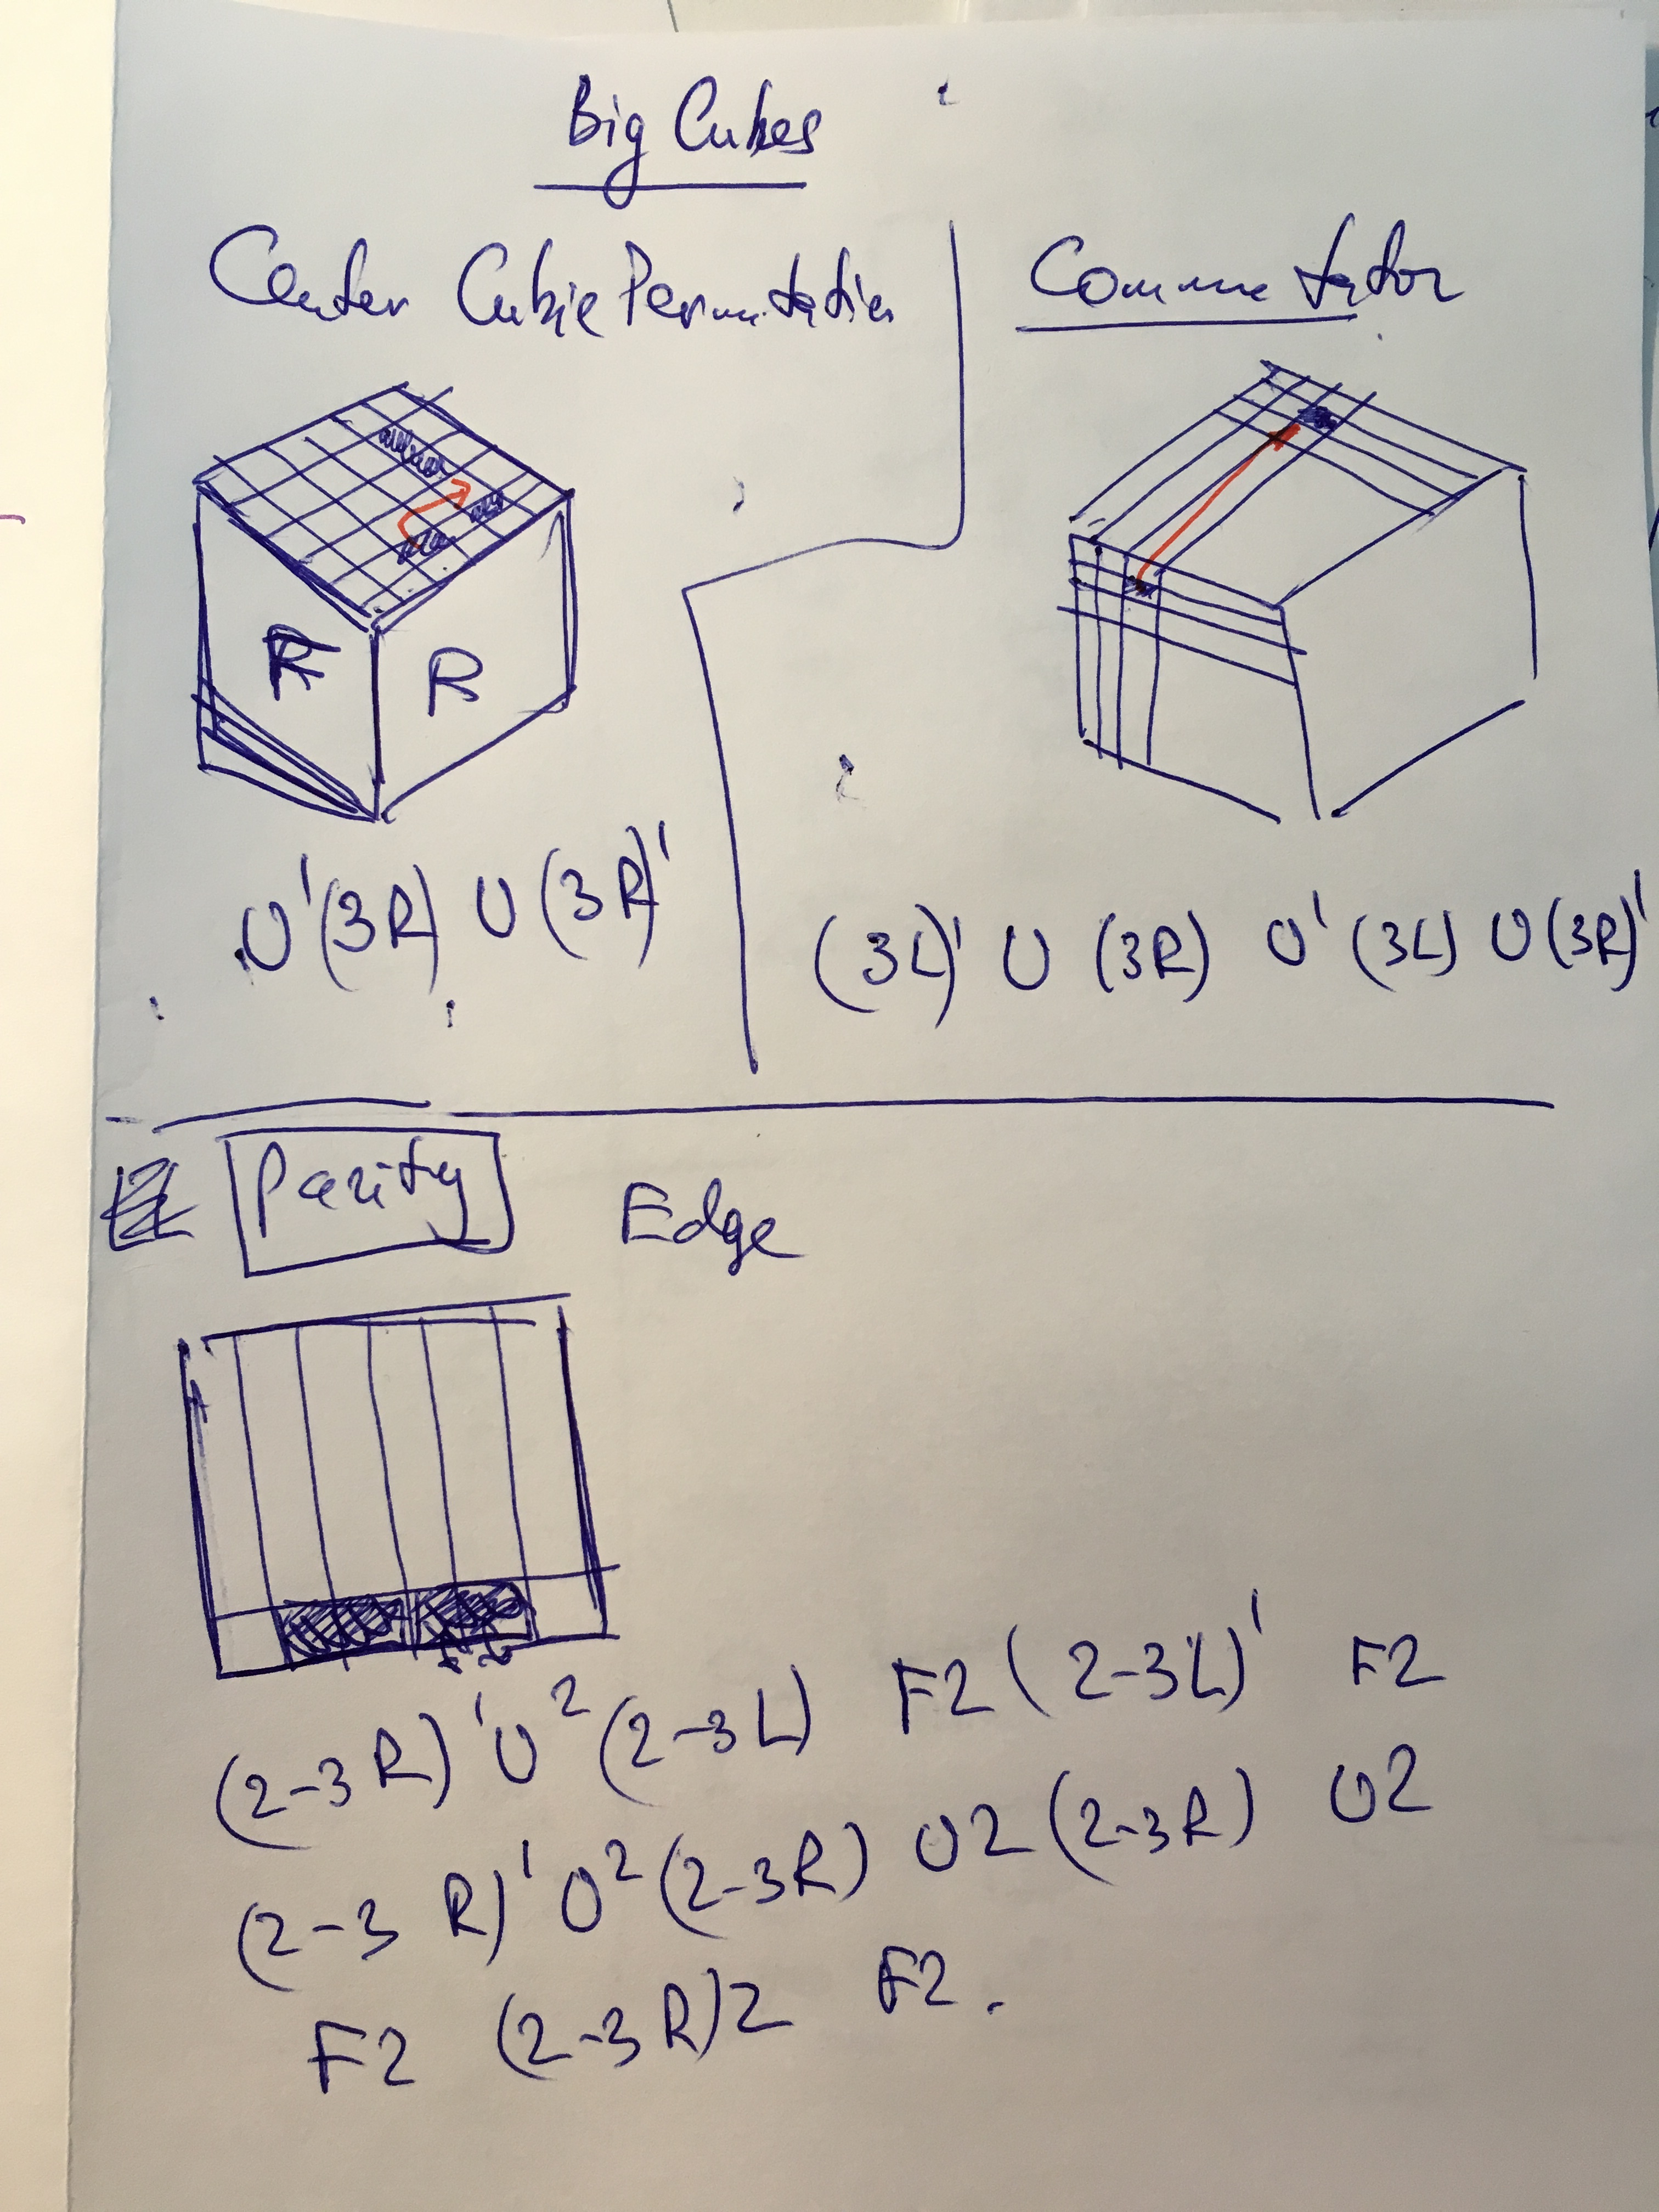 Big Cubes
Center Cubie Permutation
F R
U'(3R) U (3R)'
Commutator
(3L)' U (3R) U' (3L) U (3R)'
Parity Edge
(2-3R)' U2 (2-3L) F2 (2-3L)' F2
(2-3R)' U2 (2-3R) U2 (2-3R) U2
F2 (2-3R)2 F2.